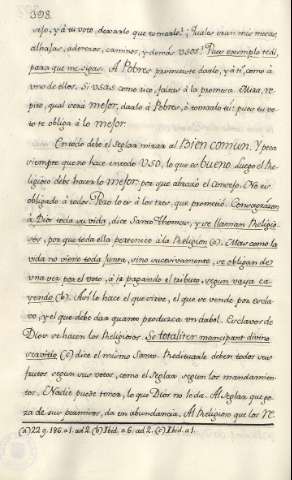 398.
sejo, y à tu voto, dexarlo que tomarlo! ¿Quales eran mis meras
alhajas, aderezos, caminos, y demás usos? Puse exemplo todo,
para que me sigas. A Pobres prometiste darlo, y à ti, como à
uno de ellos. Si usas como rico, faltas à la promesa. Mira, re-
pito, qual verà mejor, darlo à Pobres, ò tomarlo tu: pues tu vo-
to te obliga à lo mejor.
En todo debe el Seglar mirar al bien comun. Y peca
siempre que no hace en todo uso, lo que es bueno. Luego el Re-
ligioso debe hacer lo mejor: por que abrazò el Consejo. No es
obligado à todos. Pero lo es à los tres, que prometiò. Consagraron
à Dios toda su vida, dice Santo Thomas, y se llaman Religio-
sos, por que toda ella pertenece à la Religion (a). Mas como la
vida no viene toda junta, sino successivamente, se obligan de
una vez por el voto, à ir pagando el tributo, segun vaya ca-
yendo (b). Asi lo hace el que sirve, el que se vende por escla-
vo, y el que debe dar quanto produzca un arbol. Esclavos de
Dios se hacen los Religiosos. Se totaliter mancipant divino
servitio (c) dice el mismo Santo. Precisamente deben todos sus
frutos segun sus votos, como el Seglar segun los mandamien-
tos. Nadie puede tener, lo que Dios no le da. Al Seglar que go-
za de sus dominios, da en abundancia. Al Religioso que los re-
(a) 22 q. 186. a 1. ad 2. (b) Ibid. a 6. ad 2. (c) Ibid. a 1.